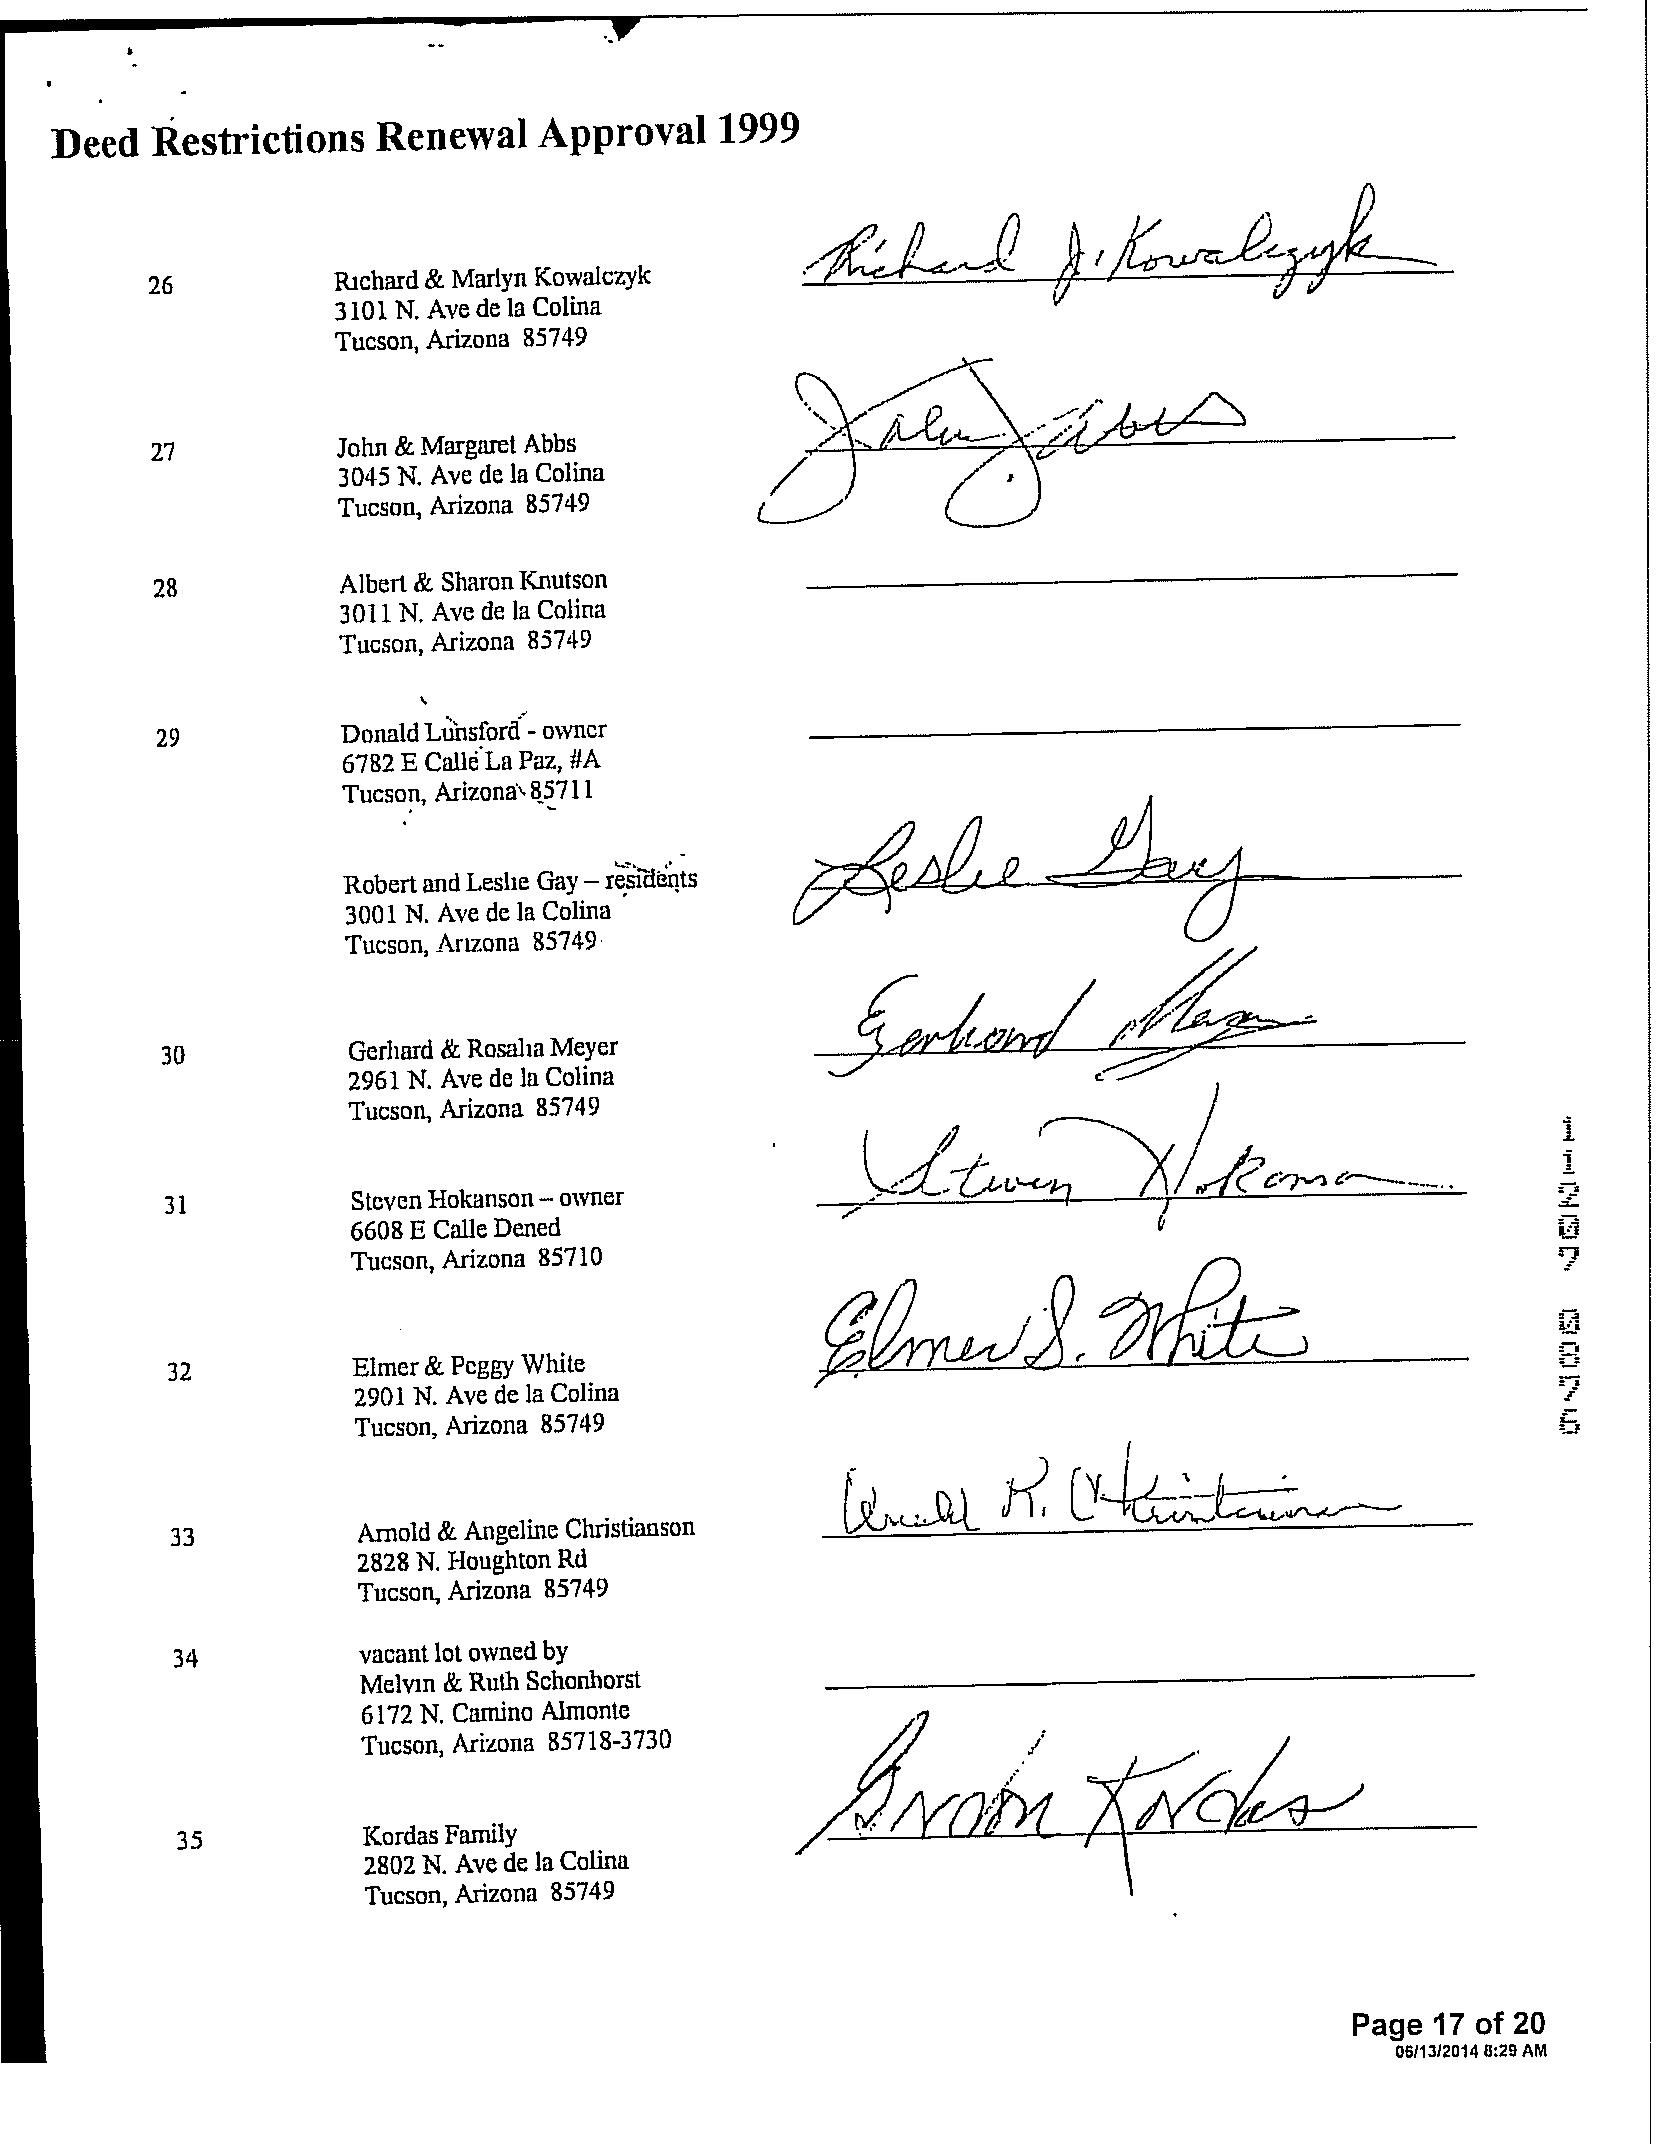 Deed Restrictions Renewal Approval 1999
26
Richard & Marlyn Kowalczyk
3101 N. Ave de la Colina
Tucson, Arizona 85749
Richard J. Kowalczyk
27
John & Margaret Abbs
3045 N. Ave de la Colina
Tucson, Arizona 85749
John Abbs
28
Albert & Sharon Knutson
3011 N. Ave de la Colina
Tucson, Arizona 85749
29
Donald Lunsford - owner
6782 E Calle La Paz, #A
Tucson, Arizona 85711
Robert and Leslie Gay – residents
3001 N. Ave de la Colina
Tucson, Arizona 85749
Leslie Gay
30
Gerhard & Rosalia Meyer
2961 N. Ave de la Colina
Tucson, Arizona 85749
Gerhard Meyer
31
Steven Hokanson – owner
6608 E Calle Dened
Tucson, Arizona 85710
Steven Hokanson
32
Elmer & Peggy White
2901 N. Ave de la Colina
Tucson, Arizona 85749
Elmer S. White
33
Arnold & Angeline Christianson
2828 N. Houghton Rd
Tucson, Arizona 85749
Arnold K. Christianson
34
vacant lot owned by
Melvin & Ruth Schonhorst
6172 N. Camino Almonte
Tucson, Arizona 85718-3730
35
Kordas Family
2802 N. Ave de la Colina
Tucson, Arizona 85749
Kordas
Page 17 of 20
06/13/2014 8:29 AM